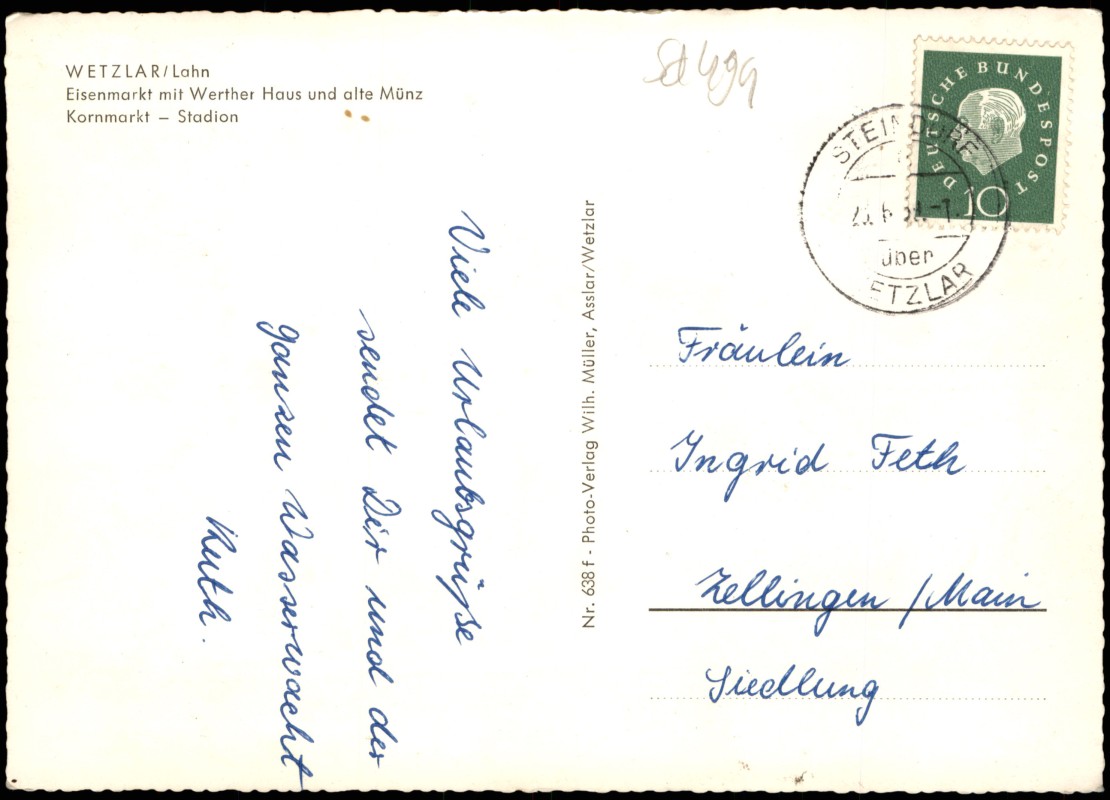 WETZLAR/Lahn
Eisenmarkt mit Werther Haus und alte Münz
Kornmarkt – Stadion
Viele Urlaubsgrüße
sendet Dir und der
ganzen Wasserwacht
Ruth.
Nr. 638 f - Photo-Verlag Wilh. Müller, Asslar/Wetzlar
DEUTSCHE BUNDESPOST
10
STEINDORF
über
ETZLAR
Fräulein
Ingrid Feth
Zellingen /Main
Siedlung